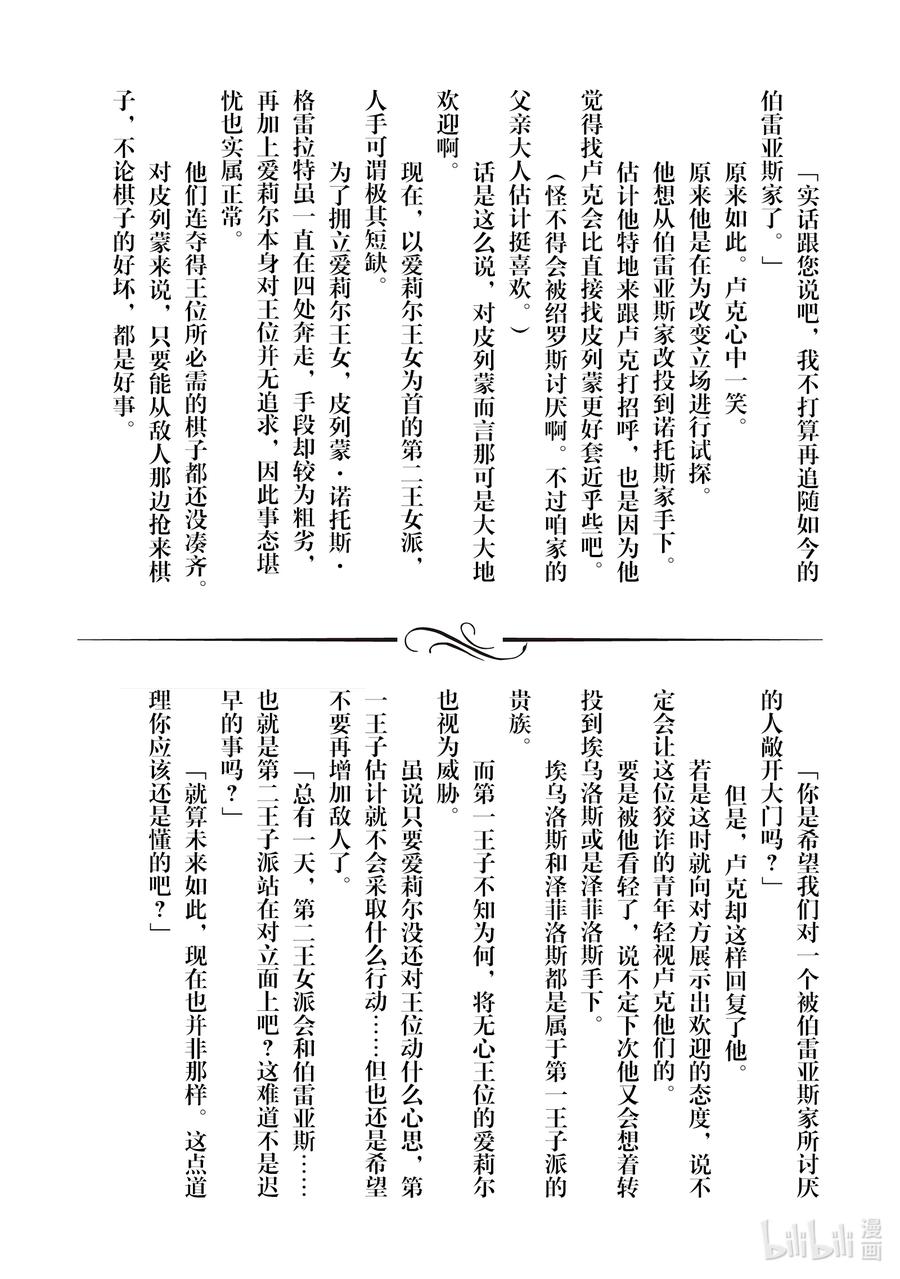 「实话跟您说吧，我不打算再追随如今的
伯雷亚斯家了。」
原来如此。卢克心中一笑。
原来他是在为改变立场进行试探。
他想从伯雷亚斯家改投到诺托斯家手下。
估计他特地来跟卢克打招呼，也是因为他
觉得找卢克会比直接找皮列蒙更好套近乎些吧。
（怪不得会被绍罗斯讨厌啊。不过咱家的
父亲大人估计挺喜欢。）
话是这么说，对皮列蒙而言那可是大大地
欢迎啊。
现在，以爱莉尔王女为首的第二王女派，
人手可谓极其短缺。
为了拥立爱莉尔王女，皮列蒙·诺托斯·
格雷拉特虽一直在四处奔走，手段却较为粗劣，
再加上爱莉尔本身对王位并无追求，因此事态堪
忧也实属正常。
他们连夺得王位所必需的棋子都还没凑齐。
对皮列蒙来说，只要能从敌人那边抢来棋
子，不论棋子的好坏，都是好事。
「你是希望我们对一个被伯雷亚斯家所讨厌
的人敞开大门吗？」
但是，卢克却这样回复了他。
若是这时就向对方展示出欢迎的态度，说不
定会让这位狡诈的青年轻视卢克他们的。
要是被他看轻了，说不定下次他又会想着转
投到埃乌洛斯或是泽菲洛斯手下。
埃乌洛斯和泽菲洛斯都是属于第一王子派的
贵族。
而第一王子不知为何，将无心王位的爱莉尔
也视为威胁。
虽说只要爱莉尔没还对王位动什么心思，第
一王子估计就不会采取什么行动……但也还是希望
不要再增加敌人了。
「总有一天，第二王女派会和伯雷亚斯……
也就是第二王子派站在对立面上吧？这难道不是迟
早的事吗？」
「就算未来如此，现在也并非那样。这点道
理你应该还是懂的吧？」
bilibili 漫画